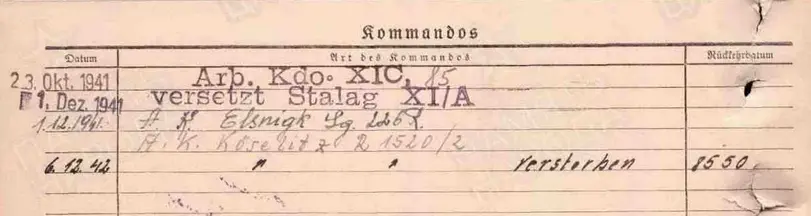 Kommandos
Datum Art des Kommandos Rückkehrdatum
23. Okt. 1941 Arb. Kdo. XIC, 85
1. Dez. 1941 versetzt Stalag XI/A
1.12.1941 A. K. Elsnigk Lg. 226
A. K. Köselitz 2 1520/2
6.12.42 " " verstorben 8550